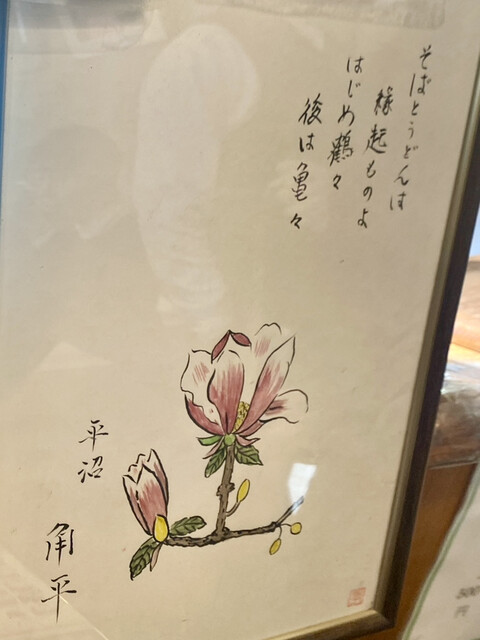 そばとうどんは
縁起ものよ
はじめ鶴々
後は亀々
平沼
角平
500
円